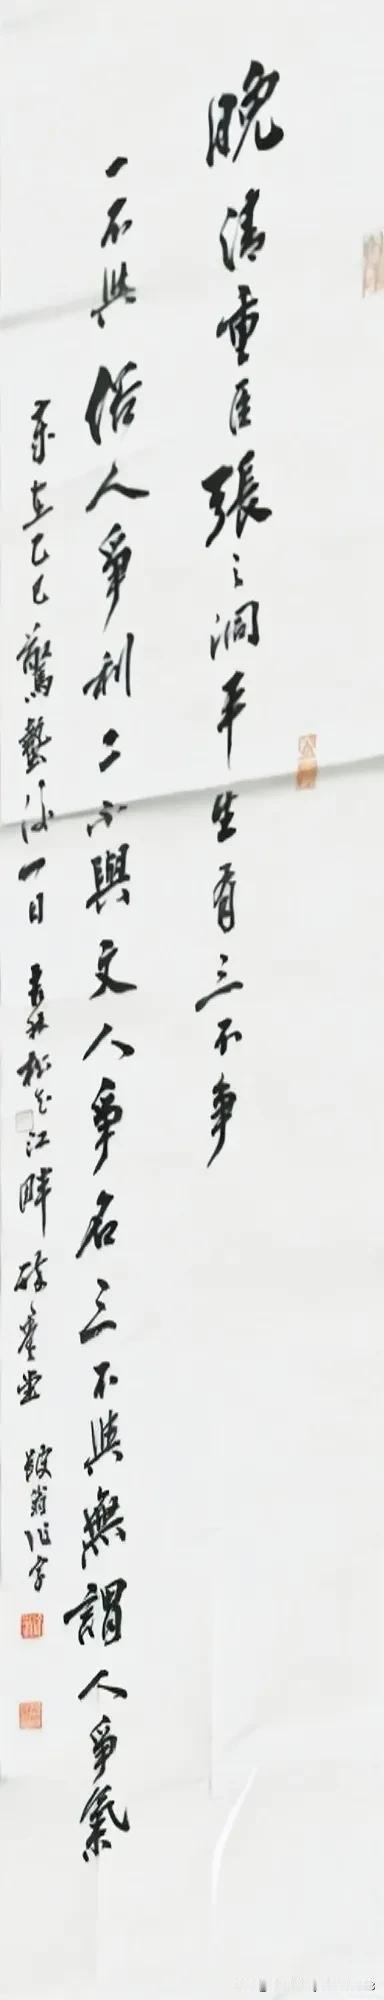 晚清重臣張之洞平生有三不爭
一不與俗人爭利二不與文人爭名三不與無謂人爭氣
歲在乙巳驚蟄後一日 吉林松花江畔 堂 翁作字